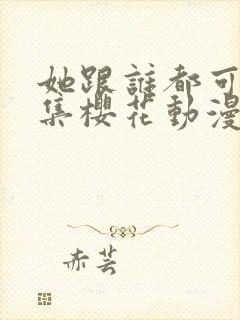 她跟誰都可
集櫻花動漫
赤芸